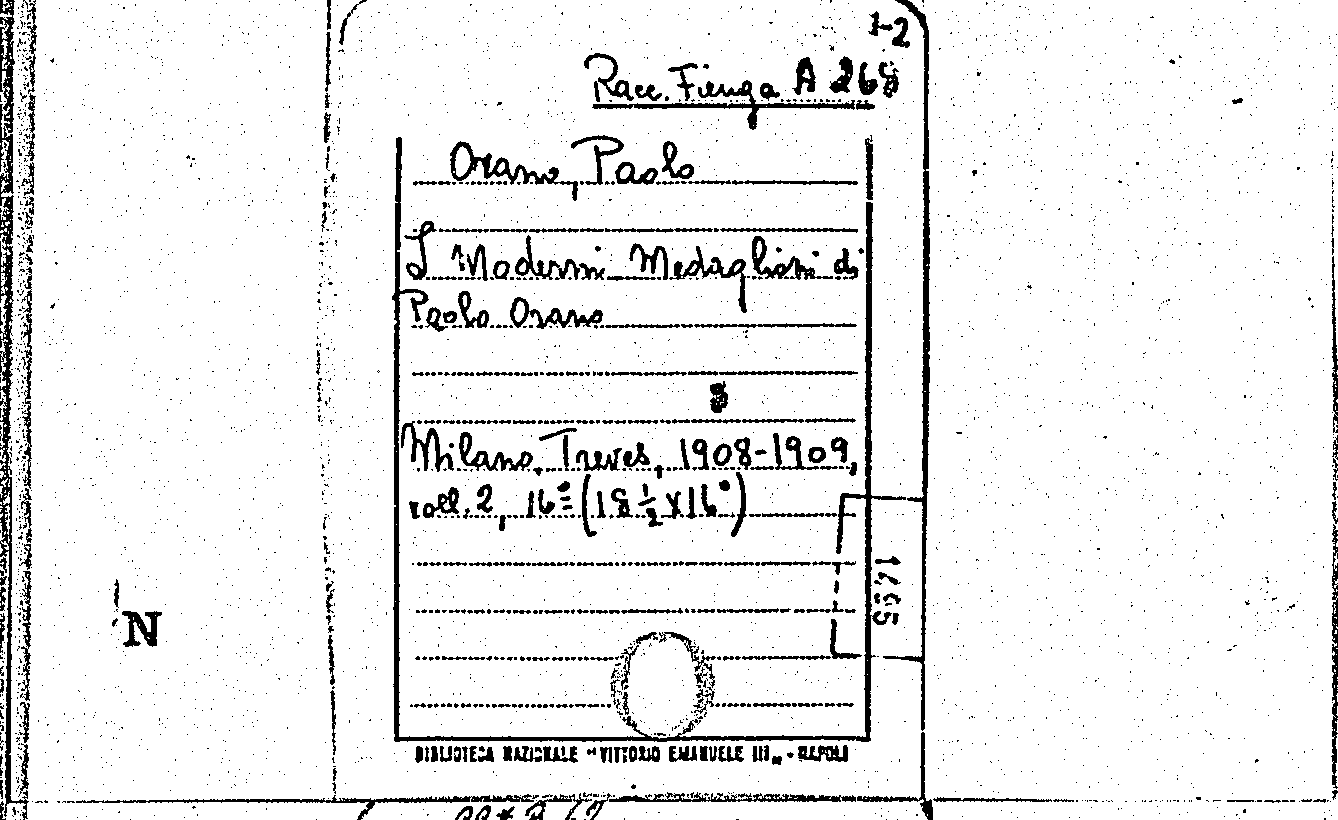 1-2
Racc. Fienga A 268
Orano, Paolo
I Moderni. Medaglioni di
Paolo Orano
Milano, Treves, 1908-1909,
voll. 2, 16º (18 ½ x 16º)
N
BIBLIOTECA NAZIONALE "VITTORIO EMANUELE III" - NAPOLI